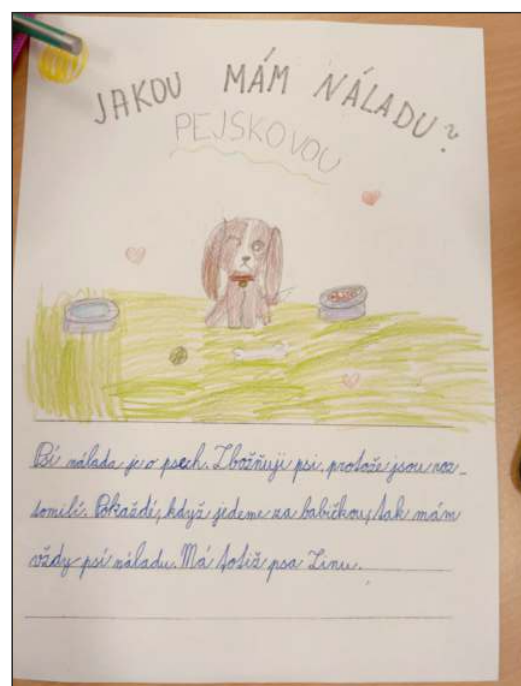 JAKOU MÁM NÁLADU?
PEJSKOVOU
Psí nálada je o psech. Zbožňuji psi, protože jsou roz-
tomilí. Pokaždé, když jedeme za babičkou, tak mám
vždy psí náladu. Má totiž psa Linu.